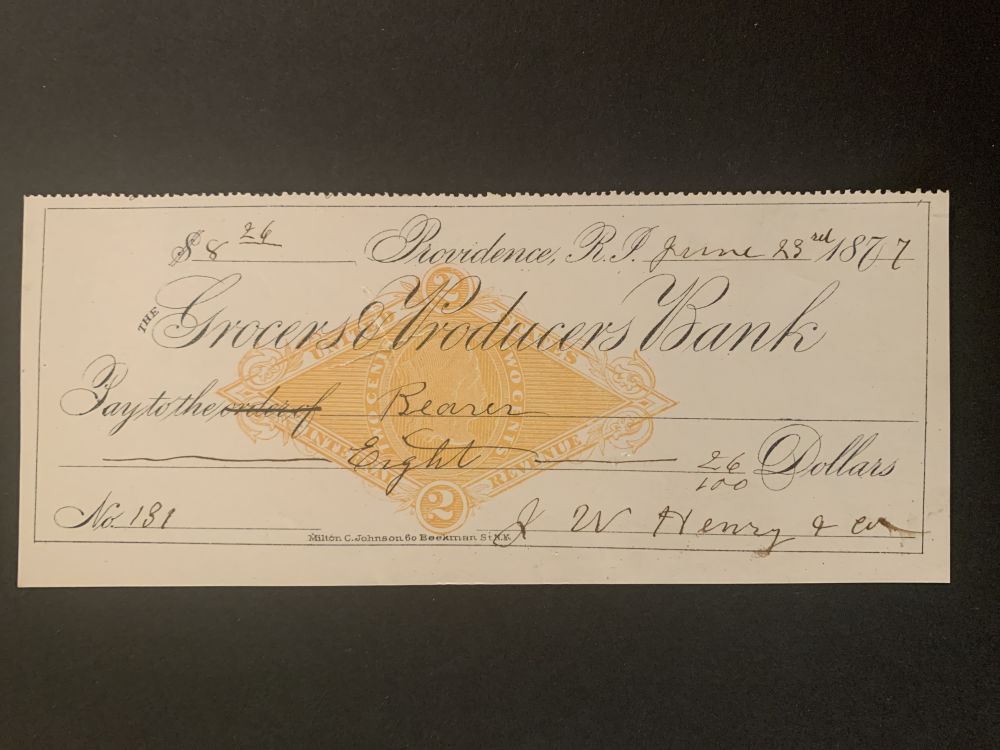 $ 8 26 Providence, R.I. June 23rd 1877
THE Grocers & Producers Bank
UNITED STATES
TWO CENTS TWO CENTS
INTERNAL REVENUE
2
2
Pay to the order of Bearer
Eight 26/100 Dollars
No. 131 J W Henry & Co
Milton C. Johnson 60 Beekman St N.Y.